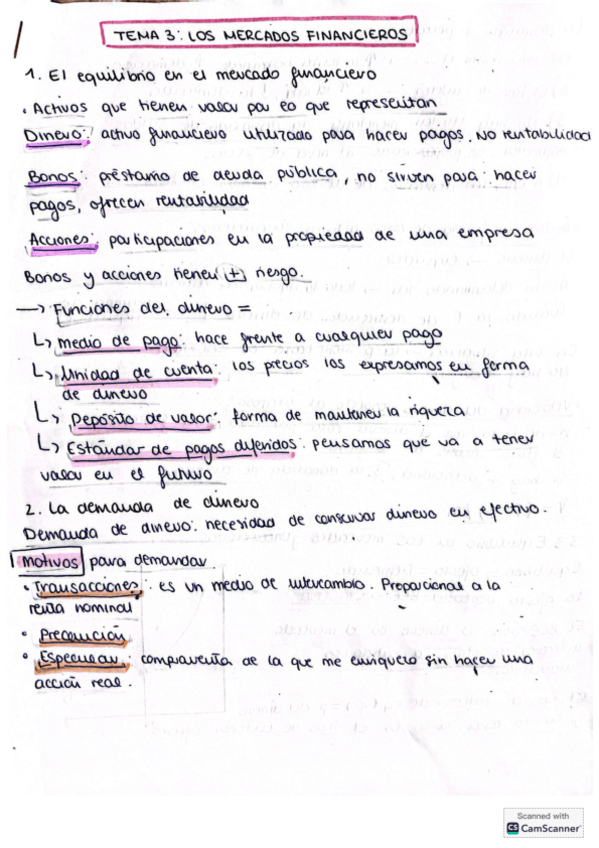 TEMA 3: LOS MERCADOS FINANCIEROS
1. El equilibrio en el mercado financiero
· Activos que tienen valor por lo que representan
Dinero: activo financiero utilizado para hacer pagos. No rentabilidad
Bonos: préstamo de deuda pública, no sirven para hacer
pagos, ofrecen rentabilidad
Acciones: participaciones en la propiedad de una empresa
Bonos y acciones tienen (+) riesgo.
—> Funciones del dinero =
↳ Medio de pago: hace frente a cualquier pago
↳ Unidad de cuenta: los precios los expresamos en forma
de dinero
↳ Depósito de valor: forma de mantener la riqueza
↳ Estándar de pagos diferidos: pensamos que va a tener
valor en el futuro
2. La demanda de dinero
Demanda de dinero: necesidad de conservar dinero en efectivo.
Motivos para demandar
· Transacciones: es un medio de intercambio. Proporcional a la
renta nominal
· Precaución
· Especular: compraventa de la que me enriquezco sin hacer una
acción real.
Scanned with
CS CamScanner